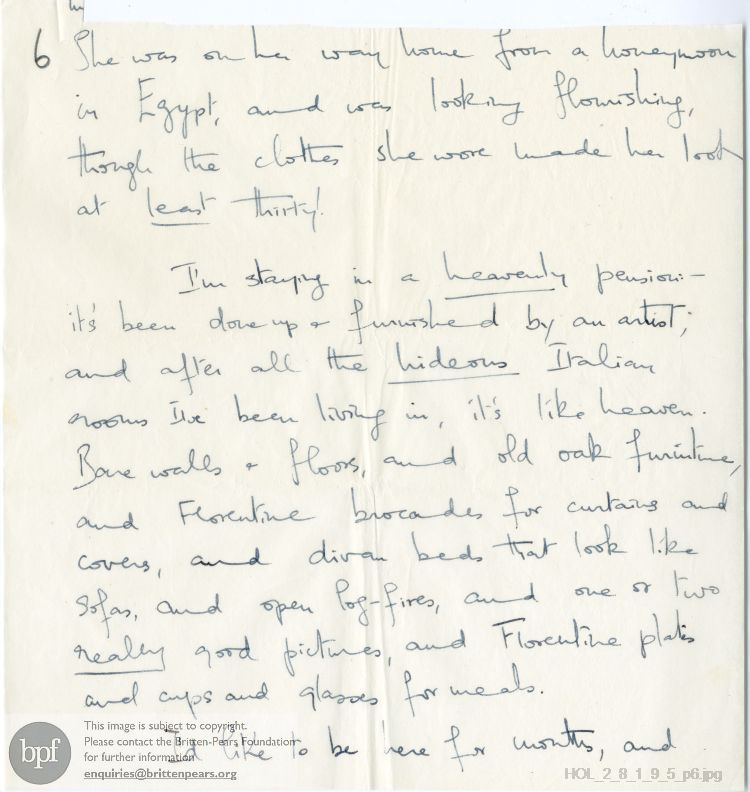 6 She was on her way home from a honeymoon
in Egypt, and was looking flourishing,
though the clothes she wore made her look
at least thirty!
I'm staying in a heavenly pension:-
it's been done up & furnished by an artist;
and after all the hideous Italian
rooms I've been living in, it's like heaven.
Bare walls & floors, and old oak furniture,
and Florentine brocades for curtains and
covers, and divan beds that look like
sofas, and open log-fires, and one or two
really good pictures, and Florentine plates
and cups and glasses for meals.
I'd like to be here for months, and
bpf
This image is subject to copyright.
Please contact the Britten-Pears Foundation
for further information
enquiries@brittenpears.org
HOL_2_8_1_9_5_p6.jpg